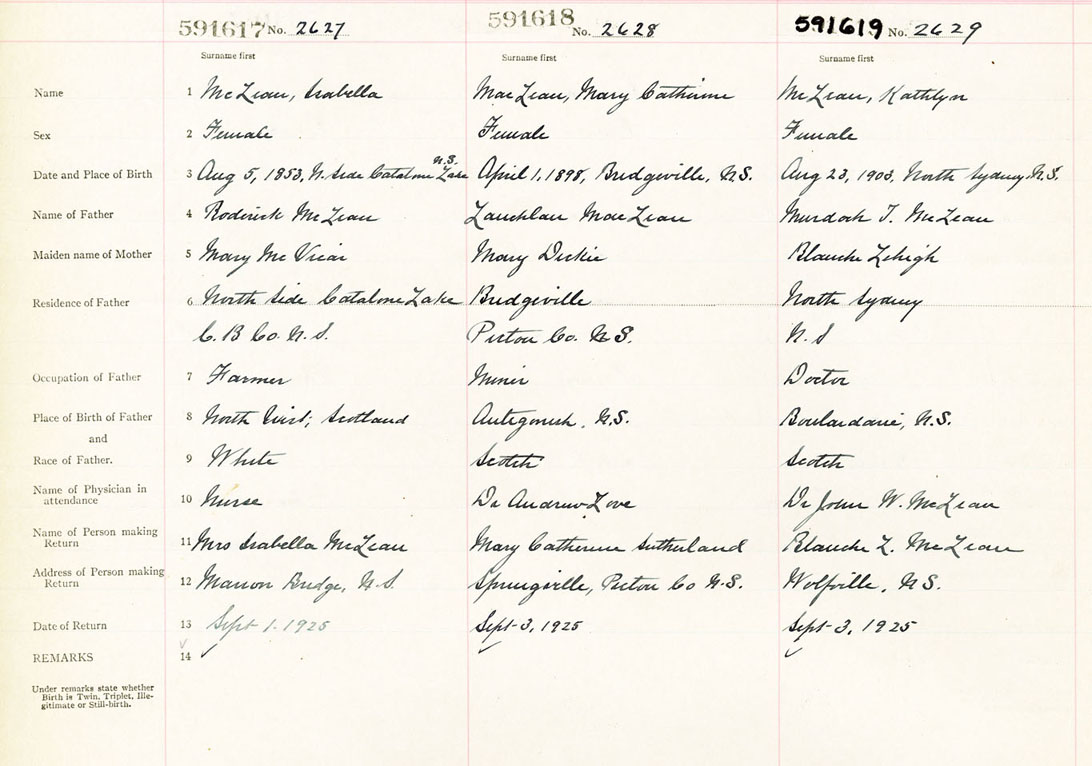 591617 No. 2627 591618 No. 2628 591619 No. 2629
Surname first Surname first Surname first
Name 1 McLean, Isabella MacLean, Mary Catherine McLean, Kathlyn
Sex 2 Female Female Female
N.S.
Date and Place of Birth 3 Aug 5, 1853, N. Side Catalone Lake April 1, 1898, Bridgeville, N.S. Aug 23, 1903, North Sydney, N.S.
Name of Father 4 Roderick McLean Lauchlan MacLean Murdoch T. McLean
Maiden name of Mother 5 Mary McVicar Mary Dickie Blanche Lehigh
Residence of Father 6 North Side Catalone Lake Bridgeville North Sydney
C. B Co. N. S. Pictou Co. N.S. N. S
Occupation of Father 7 Farmer Miner Doctor
Place of Birth of Father 8 North Uist, Scotland Antigonish, N.S. Boulardarie, N.S.
and
Race of Father. 9 White Scotch Scotch
Name of Physician in
attendance 10 Nurse Dr Andrew Love Dr John W. McLean
Name of Person making
Return 11 Mrs Isabella McLean Mary Catherine Sutherland Blanche L. McLean
Address of Person making
Return 12 Marion Bridge, N.S. Springville, Pictou Co N.S. Wolfville, N.S.
Date of Return 13 Sept 1. 1925 Sept 3, 1925 Sept 3, 1925
REMARKS 14
Under remarks state whether
Birth is Twin, Triplet, Ille-
gitimate or Still-birth.